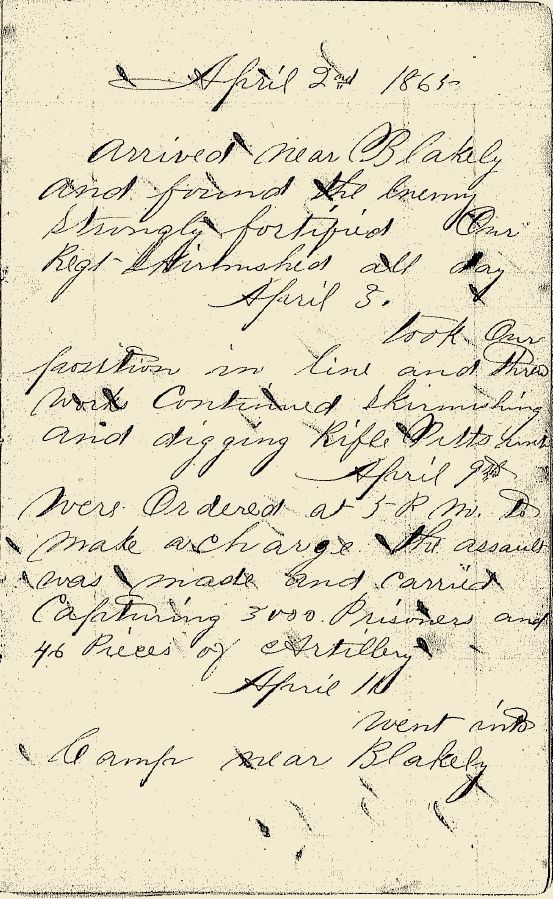 April 2nd 1865
Arrived near Blakely
and found the Enemy
Strongly fortified Our
Regt Skirmished all day
April 3.
took Our
position in line and threw
works Continued Skirmishing
and digging Rifle Pitts until
April 9th
Were Ordered at 5 P. M. to
make a charge the assault
was made and carried
Capturing 3000 Prisoners and
46 Pieces of Artillery
April 11
went into
Camp near Blakely